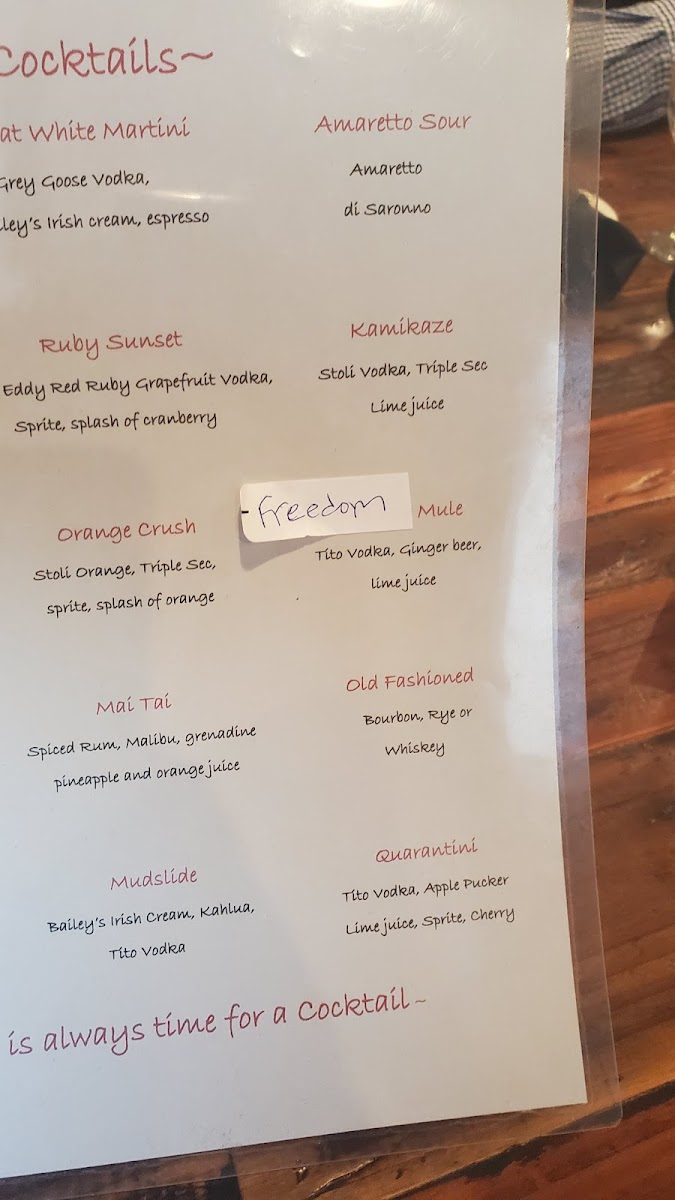 Cocktails~
at White Martini
Grey Goose Vodka,
ley's Irish cream, espresso
Amaretto Sour
Amaretto
di Saronno
Ruby Sunset
Eddy Red Ruby Grapefruit Vodka,
Sprite, splash of cranberry
Kamikaze
Stoli Vodka, Triple Sec
Lime juice
Orange Crush
Stoli Orange, Triple Sec,
sprite, splash of orange
-Freedom Mule
Tito Vodka, Ginger beer,
lime juice
Mai Tai
Spiced Rum, Malibu, grenadine
pineapple and orange juice
Old Fashioned
Bourbon, Rye or
Whiskey
Mudslide
Bailey's Irish Cream, Kahlua,
Tito Vodka
Quarantini
Tito Vodka, Apple Pucker
Lime juice, Sprite, Cherry
is always time for a Cocktail~